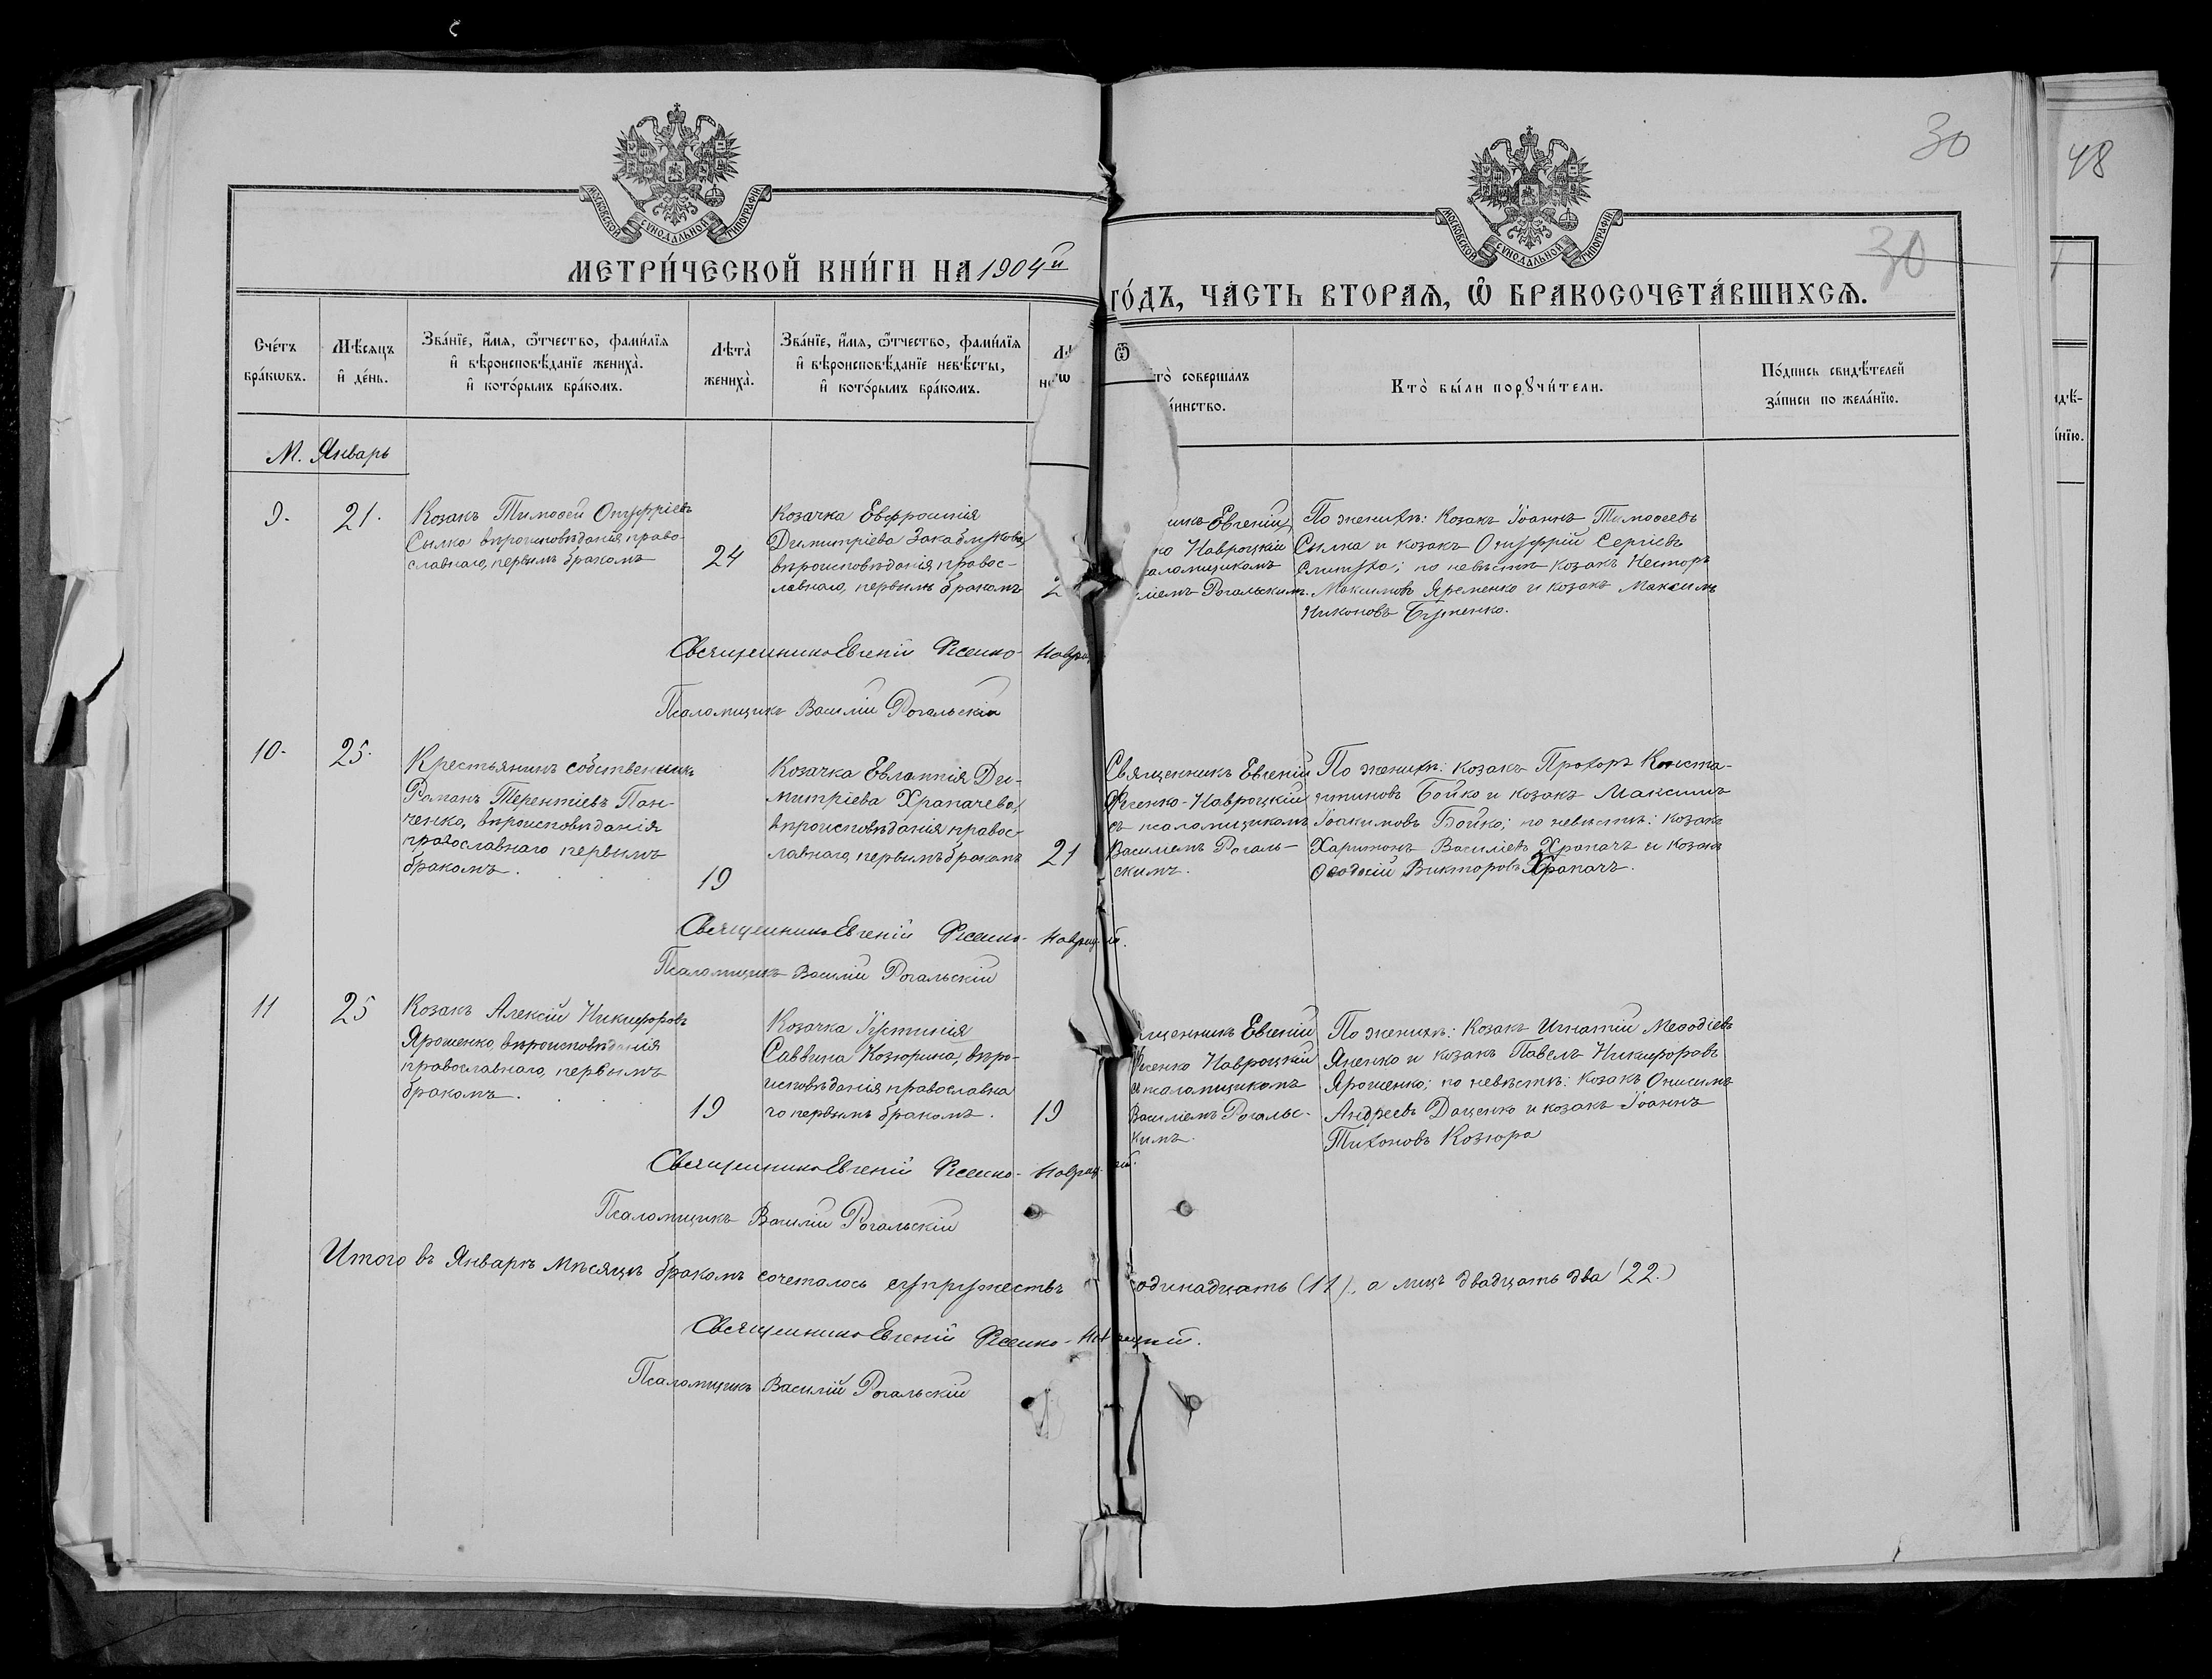 30
48
МОСКОВСКОЙ СУНОДАЛЬНОЙ ТИПОГРАФІИ
МОСКОВСКОЙ СУНОДАЛЬНОЙ ТИПОГРАФІИ
30
МЕТРИ́ЧЕСКОЙ КНИ́ГИ НА 1904й
ГО́ДЪ, ЧА́СТЬ ВТОРАѦ, Ѡ҆ БРАКОСОЧЕТА́ВШИХСѦ.
Сче́тъ
бра́кѡвъ.
Мѣ́сяцъ
и҆ де́нь.
Зва́нїе, и҆́мя, ѻ҆́тчество, фами́лїя
и҆ вѣроисповѣ́данїе жениха̀.
и҆ кото́рымъ бра́комъ.
Лѣта̀
жениха̀.
Зва́нїе, и҆́мя, ѻ҆́тчество, фами́лїя
и҆ вѣроисповѣ́данїе невѣ́сты,
и҆ кото́рымъ бра́комъ.
то̀ соверша́лъ
и́нство.
Кто̀ бы́ли порꙋчи́тели.
По́дпись свидѣ́телей
за́писи по жела́нїю.
М. Январь
9.
21.
Козакъ Тимоѳей Онуфріевъ
Сылка вѣроисповѣданія право
славнаго, первымъ бракомъ
24
Козачка Евфросинія
Димитріева Закаблукова,
вѣроисповѣданія правос-
лавнаго, первымъ бракомъ
2
икъ Евгеній
ко Навроцкій
саломщикомъ
ліемъ Рогальскимъ.
По женихѣ: Козакъ Іоаннъ Тимоѳеевъ
Сылка и козакъ Онуфрій Сергіевъ
по невѣстѣ козакъ Несторъ
Максимовъ Яременко и козакъ Максимъ
Никоновъ Бутенко.
Священникъ Евгеній Фесенко-Навро
Псаломщикъ Василій Рогальскій
10.
25.
Крестьянинъ собственникъ
Романъ Терентіевъ Пан-
ченко, вѣроисповѣданія
православнаго первымъ
бракомъ.
19
Козачка Евлампія Ди-
митріева Храпачева,
вѣроисповѣданія правос-
лавнаго, первымъ бракомъ
21
Священникъ Евгеній
Фесенко-Навроцкій
съ псаломщикомъ
Василіемъ Рогаль-
скимъ.
По женихѣ: козакъ Прохоръ Конста-
нтиновъ Бойко и козакъ Максимъ
Іоакимовъ Бойко; по невѣстѣ: козакъ
Харитонъ Василіевъ Храпачъ и козакъ
Ѳеодосій Викторовъ Храпачъ.
Священникъ Евгеній Фесенко-Навроц ій.
Псаломщикъ Василій Рогальскій
11
25
Козакъ Алексій Никифоровъ
Ярошенко, вѣроисповѣданія
православнаго, первымъ
бракомъ.
19
Козачка Іустинія
Саввина Козюрина, вѣро-
исповѣданія православна
го первымъ бракомъ.
19
ященникъ Евгеній
Фесенко Навроцкій
псаломщикомъ
Василіемъ Рогальс-
кимъ.
По женихѣ: Козакъ Игнатій Меѳодіевъ
Яненко и козакъ Павелъ Никифоровъ
Ярошенко; по невѣстѣ: Козакъ Онисимъ
Андреевъ Даценко и козакъ Іоаннъ
Тихоновъ Козюра
Священникъ Евгеній Фесенко-Навроц ій.
Псаломщикъ Василій Рогальскій
Итого въ Январѣ мѣсяцѣ бракомъ сочеталось супружествъ одинадцать (11), а лицъ двадцать два (22.)
Священникъ Евгеній Фесенко-На оцкій.
Псаломщикъ Василій Рогальскій